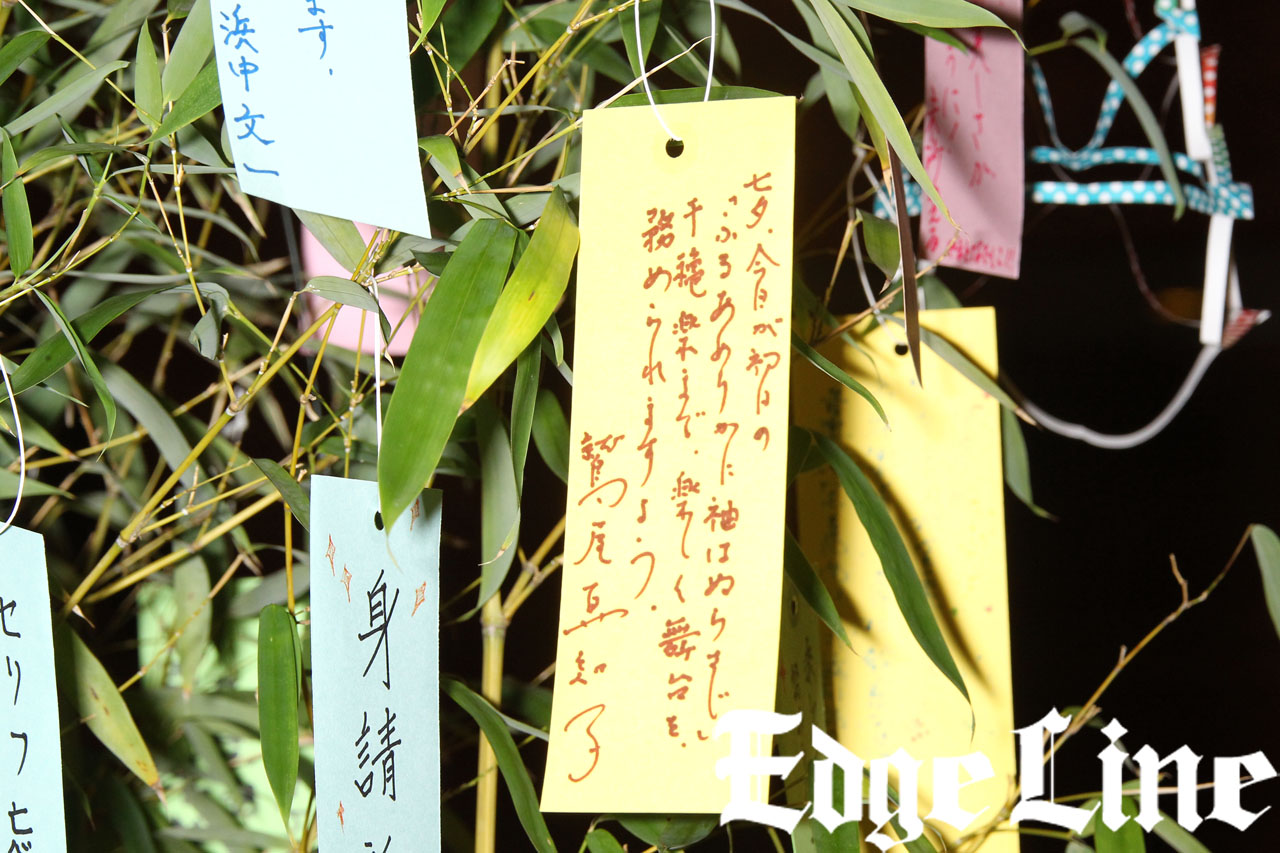 ます、
浜中文一
七夕、今日が初日の
「ふるあめりかに袖はぬらさじ」
千穐楽まで、楽しく舞台を、
務められますよう。
鷲尾真知子
身請
セリフ
EdgeLine